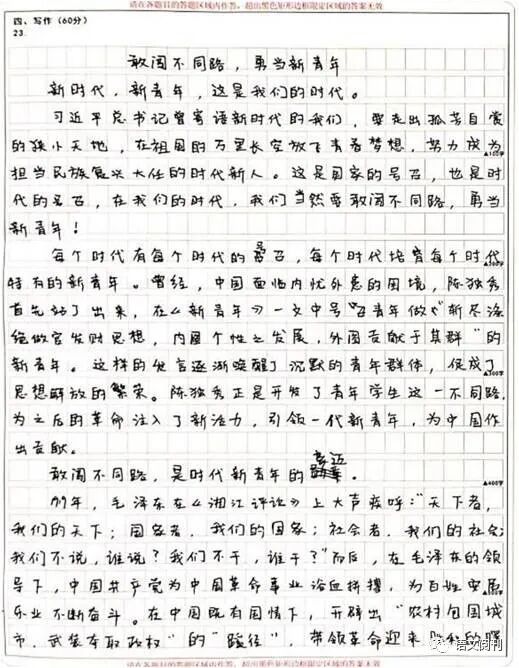 请在各题目的答题区域内作答，超出黑色矩形边框限定区域的答案无效
四、写作（60分）
23.
敢闯不同路，勇当新青年
新时代，新青年，这是我们的时代。
习近平总书记曾寄语新时代的我们，要走出孤芳自赏
的狭小天地，在祖国的万里长空放飞青春梦想，努力成为
担当民族复兴大任的时代新人。这是国家的号召，也是时
▲100字
代的号召，在我们的时代，我们当然要敢闯不同路，勇当
新青年！
每个时代有每个时代的号召，每个时代培育每个时代
特有的新青年。曾经，中国面临内忧外患的困境，陈独秀
首先站了出来，在《新青年》一文中号召青年做“斩尽涤
绝做官发财思想，内图个性之发展，外图贡献于其群”的
新青年。这样的发言逐渐唤醒了沉默的青年群体，促成了
思想解放的繁荣。陈独秀正是开发了青年学生这一不同路，
为之后的革命注入了新活力，引领一代新青年，为中国作
出贡献。
敢闯不同路，是时代新青年的豪迈。
▲400字
19年，毛泽东在《湘江评论》上大声疾呼：“天下者，
我们的天下；国家者，我们的国家；社会者，我们的社会；
我们不说，谁说？我们不干，谁干？”而后，在毛泽东的领
导下，中国共产党为中国革命事业浴血拼搏，为百姓安居
乐业不断奋斗。在中国既有国情下，开辟出“农村包围城
市，武装夺取政权”的“蹊径”，带领革命迎来时代的曙
语文周刊
请在各题目的答题区域内作答，超出黑色矩形边框限定区域的答案无效